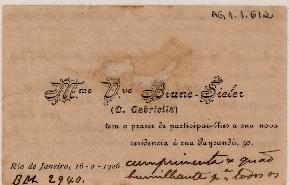 AG.1.1.612
Mme Vve Brune-Sieler
(D. Gabriella)
tem o prazer de participar-lhes a sua nova
residencia á rua Paysandú, 30.
Rio de Janeiro, 16-9-1906
cumprimenta e
BM 2940.
humilhante p.ª todos os